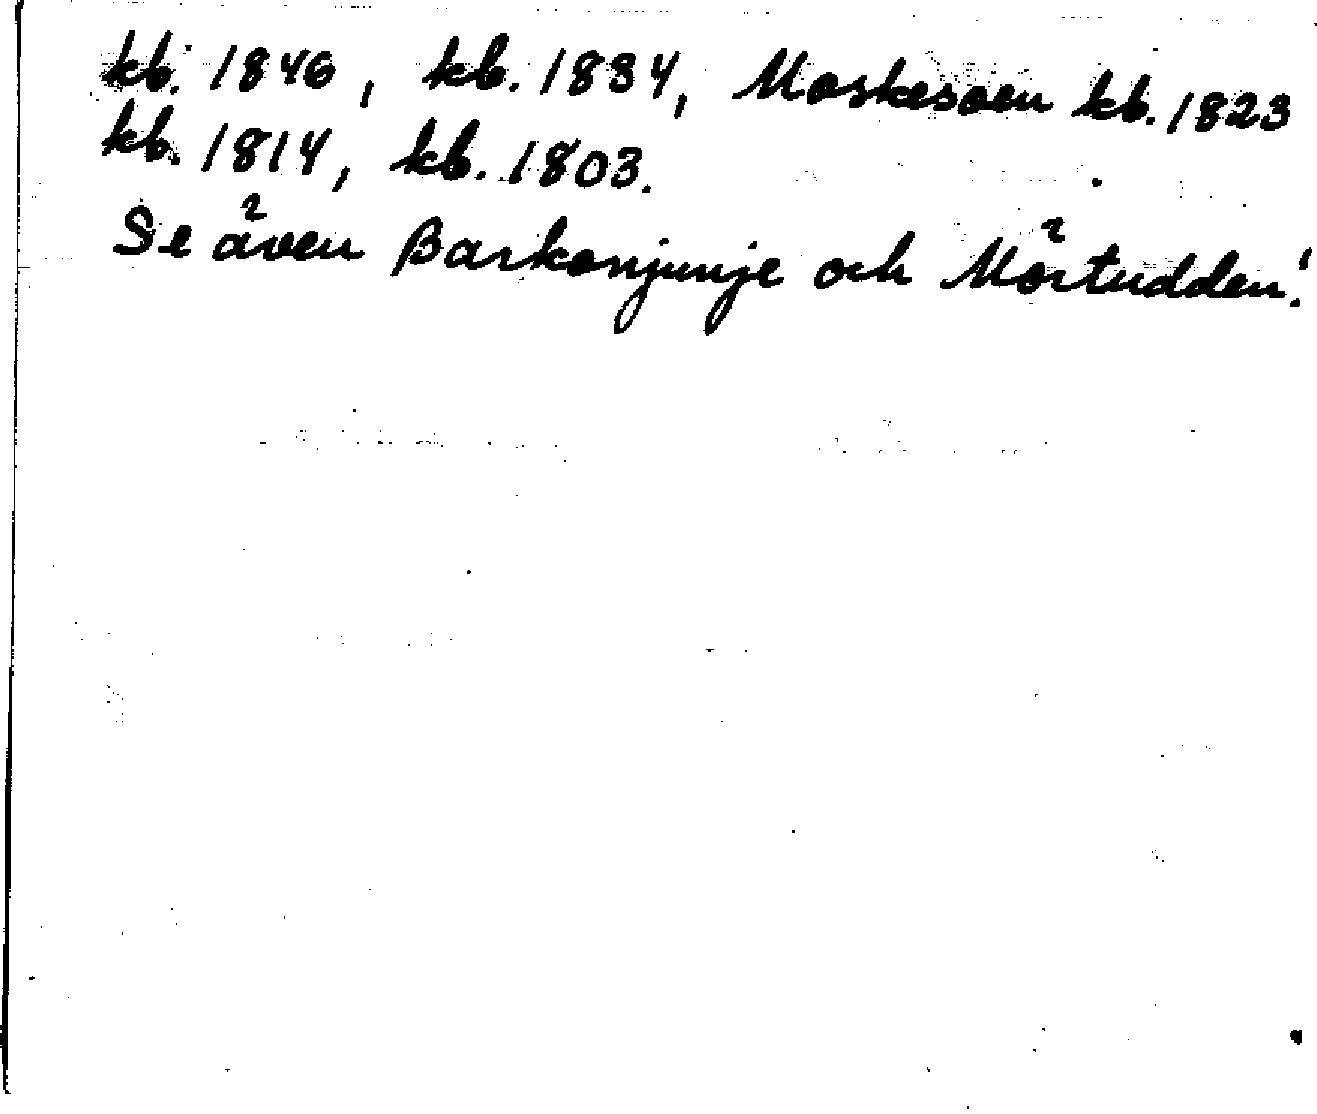 kb. 1846, kb. 1834, Moskesoen kb. 1823
kb. 1814, kb. 1803.
Se även Barkonjunje och Mörtudden!